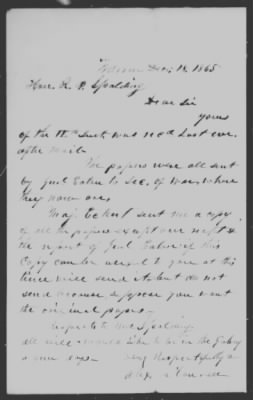 Dec. 18. 1865
Hon. R. P. Spalding
Dear Sir
yours
of the 11th inst. was recd last eve.
after mail.
The papers were all sent
by Genl Eaton to Sec. of War, where
they now are.
Maj. Eckert sent me a copy
of all the papers except one receipt &
the report of Genl Eaton if this
Copy can be of use to you at this
time will send it but do not
send because suppose you want
the original papers—
respects to Mrs Spalding
all well like to be in the
very respectfully